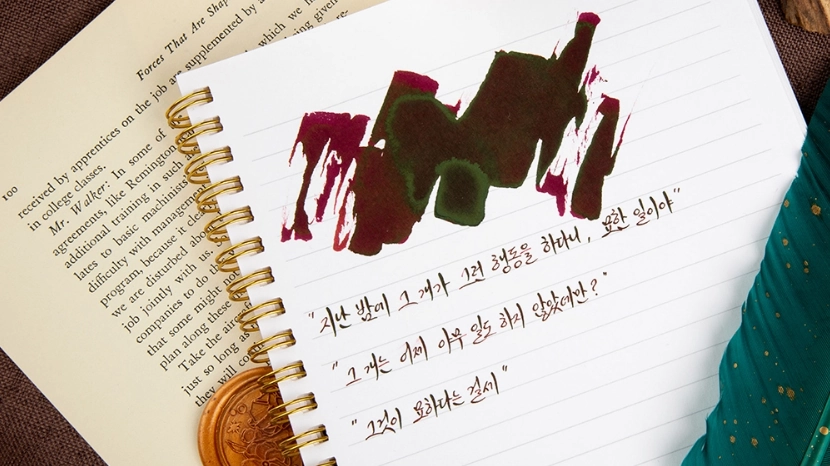 100
Forces That Are Shap
received by apprentices on the job are supplemented by a
in college classes.
Mr. Walker: In some of
agreements, like Remington
additional training in such a
lates to basic machinist
difficulty with management
program, because it cle
we are disturbed abou
job jointly with us.
companies to do th
that some might no
plan along these
Take the airc
just so long as
they will cont
which we h
being given
"지난 밤에 그 개가 그런 행동을 하다니, 묘한 일이야"
"그 개는 어제 아무 일도 하지 않았네만?"
"그것이 묘하다는 걸세"